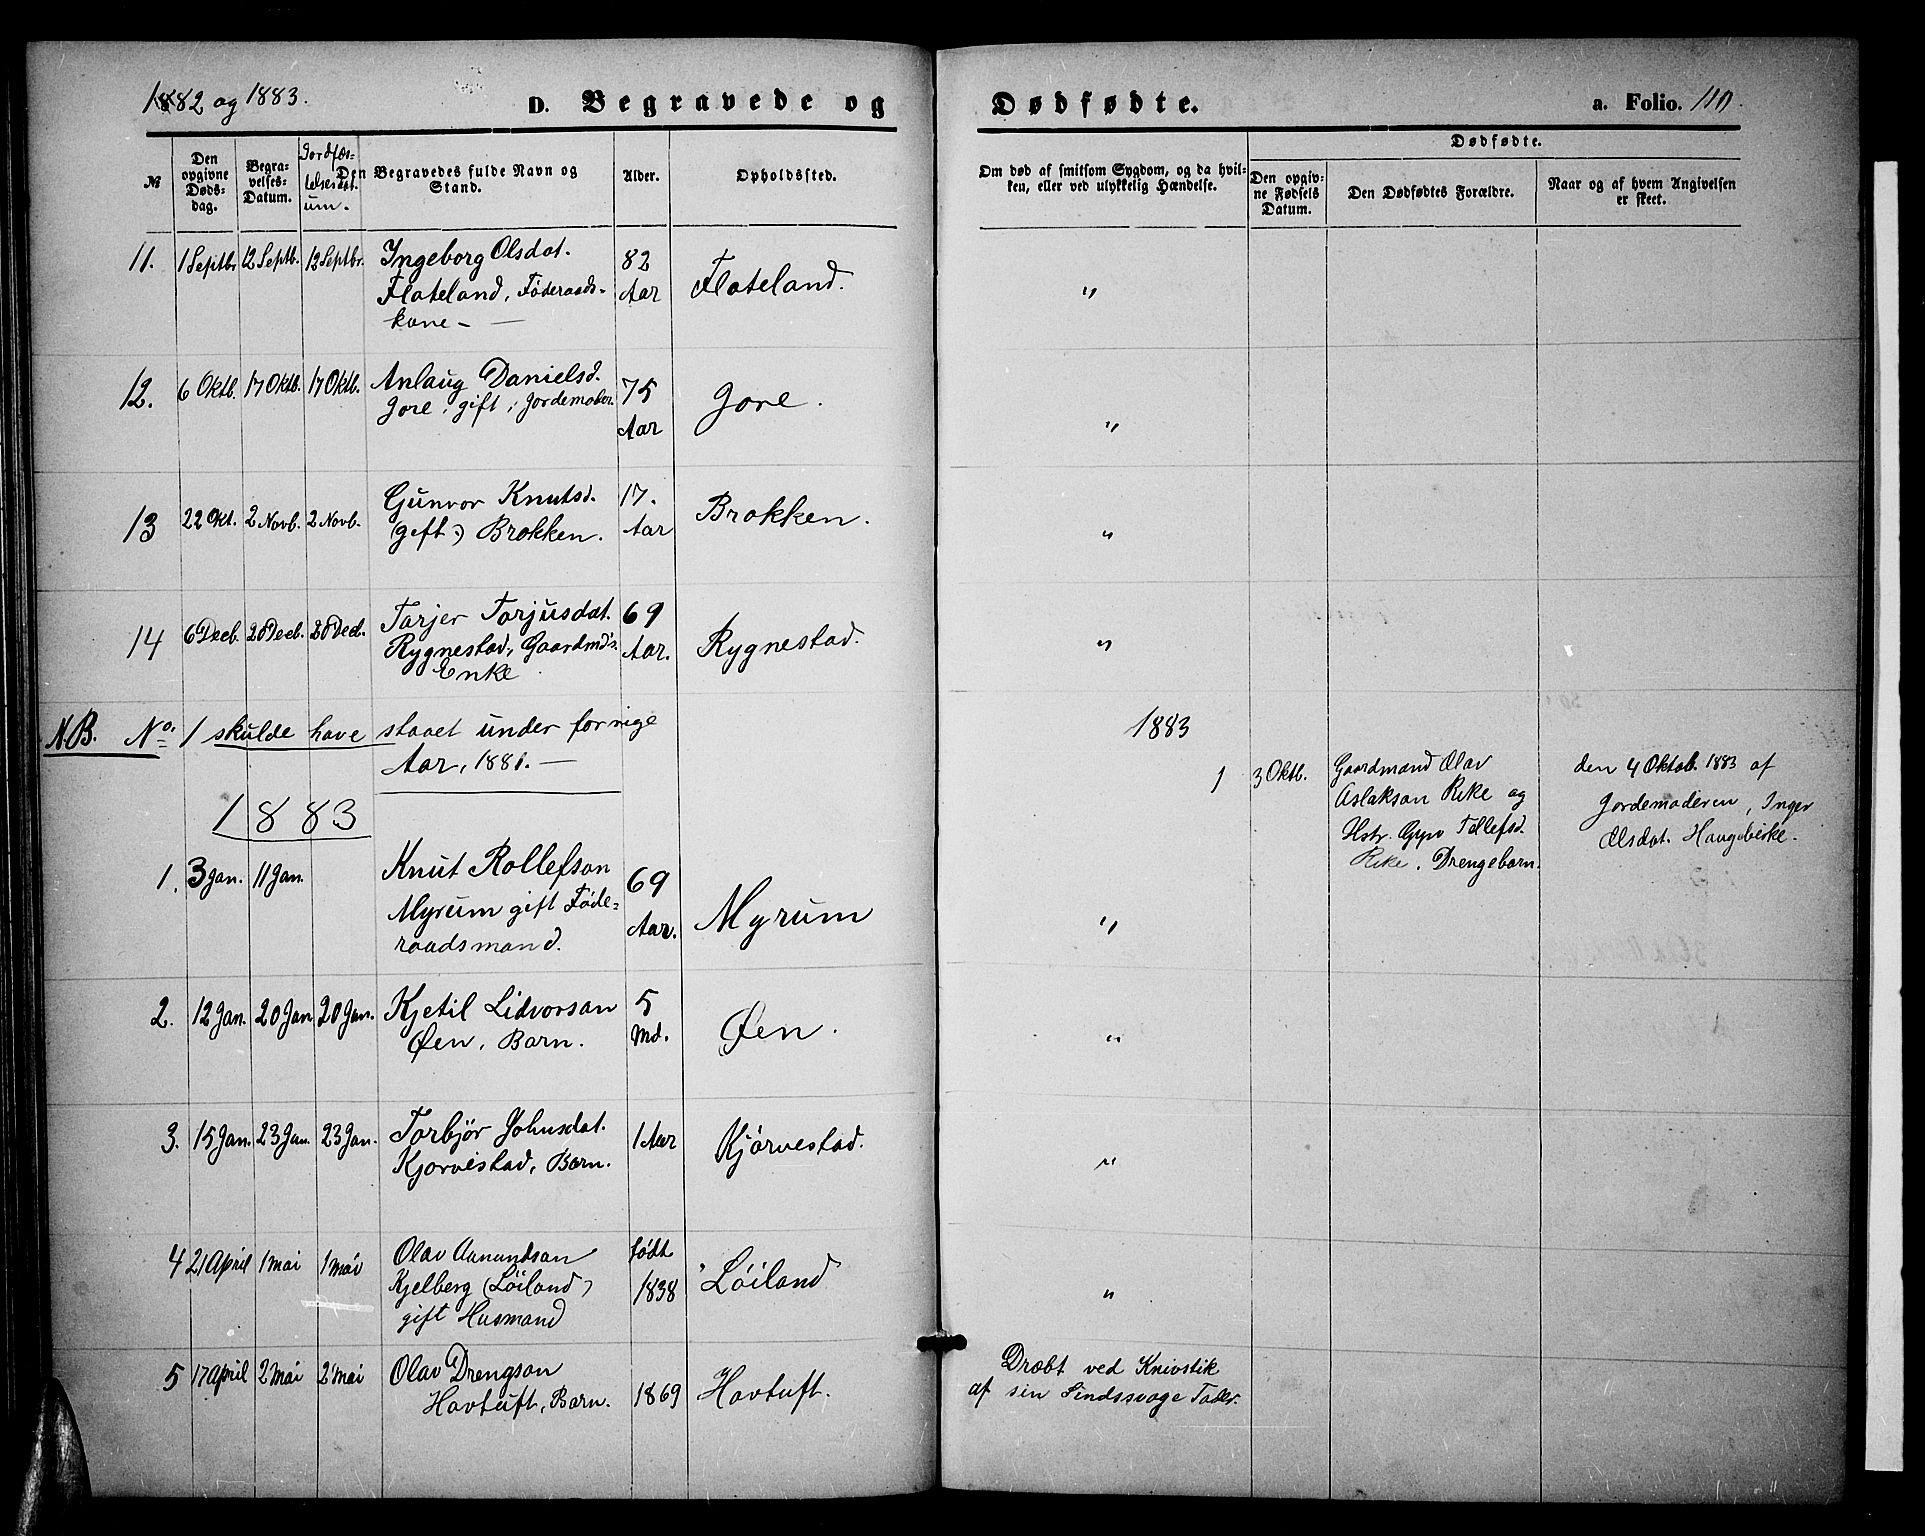 1882 og 1883.
D. Begravede og Dødfødte.
a. Folio. 110.
№
Den opgivne Døds-dag.
Begra-velses-Datum.
Jordfæs-telsesdat-um.
Den Begravedes fulde Navn og Stand.
Alder.
Opholdssted.
Om død af smitsom Sygdom, og da hvil-
ken, eller ved ulykkelig Hændelse.
Dødfødte.
Den opgiv-ne Fødsels Datum.
Den Dødfødtes Forældre.
Naar og af hvem Angivelsen er skeet.
11. 1 Septbr 12 Septb. 12 Septbr. Ingeborg Olsdat. 82
Flateland, Føderaads- Aar Flateland. "
kone -
12. 6 Oktb. 17 Oktb. 17 Oktb. Anlaug Danielsd. 75
Jore, gift, Jordemoder. Aar Jore. "
13 22 Okt. 2 Novb. 2 Novb. Gunvor Knutsd. 17.
(gift) Brokken. Aar Brokken. "
14 6 Decb. 20 Decb. 20 Decb. Tarjer Torjusdat. 69
Rygnestad, Gaardmd's Aar. Rygnestad. "
Enke
N.B. No. 1 skulde have staaet under forrige
Aar, 1881. —
1883
1 3 Oktb. Gaardmand Olav
Aslakson Rike og
Hstr. Gyro Tellefsd.
Rike. Drengebarn.
den 4 Oktob. 1883 af
Jordemoderen, Inger
Olsdat. Haugebirke.
1883
1. 3 Jan. 11 Jan. Knut Rollefson 69
Myrum gift Føde- Aar. Myrum "
raadsmand.
2. 12 Jan. 20 Jan 20 Jan. Kjetil Lidvorson 5
Øen, Barn. Md. Øen. "
3. 15 Jan. 23 Jan. 23 Jan. Torbjør Johnsdat. 1 Aar Kjørvestad. "
Kjorvestad, Barn.
4 21 April 1 Mai 1 Mai Olav Aanundson født
Kjelberg (Løiland) 1838 Løiland "
gift Husmand
5 17 April 2 Mai 2 Mai Olav Drengson
Hovtuft, Barn. 1869 Hovtuft.
Dræbt ved Knivstik
af sin Sindssvage Fader.